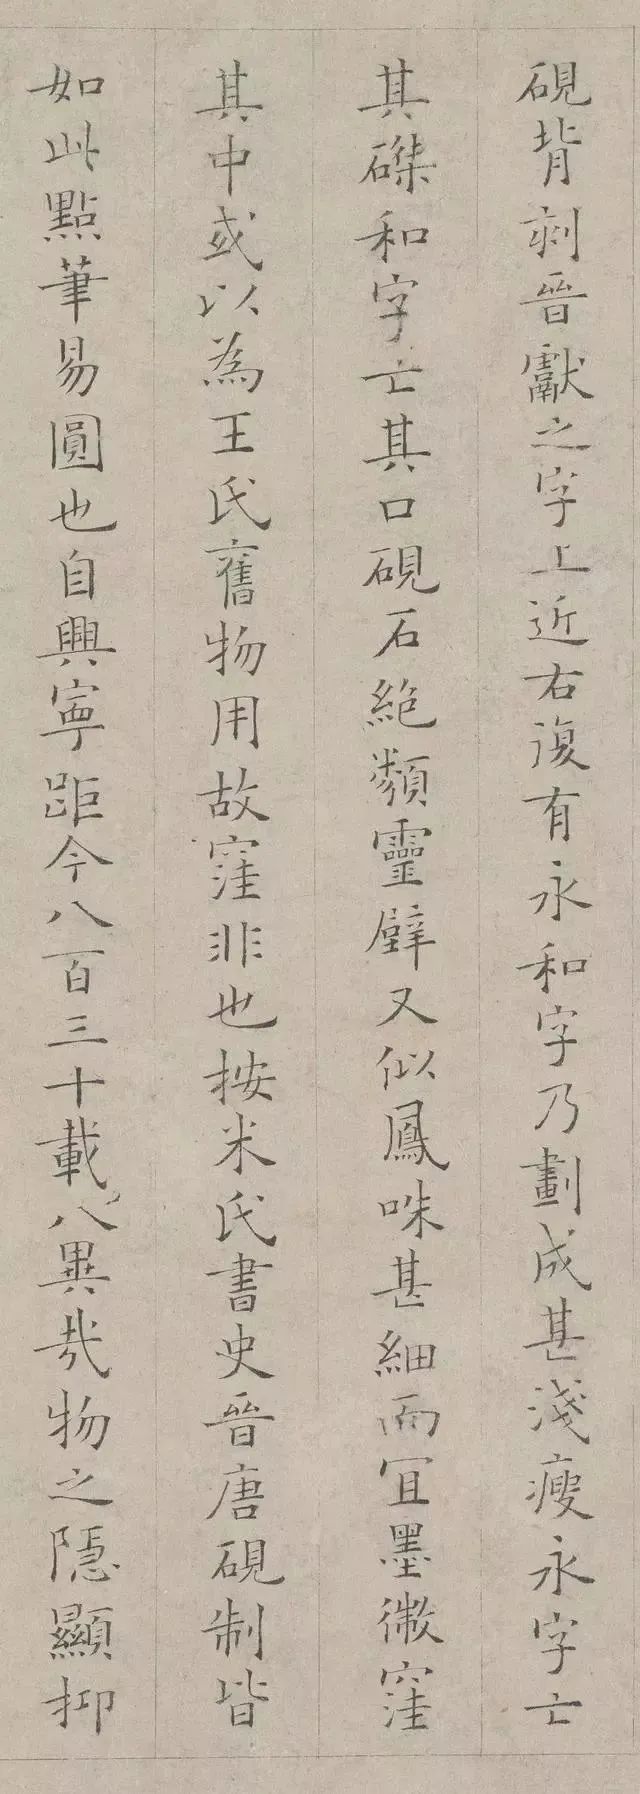 硯背刻晉獻之字上近右復有永和字乃劃成甚淺瘦永字亡
其磔和字亡其口硯石絶類靈壁又似鳳咮甚細而宜墨微窪
其中或以為王氏舊物用故窪非也按米氏書史晉唐硯制皆
如此點筆易圓也自興寧距今八百三十載八異㢤物之隱顯抑